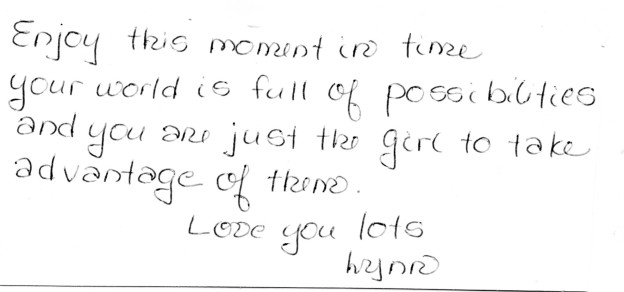 Enjoy this moment in time
your world is full of possibilities
and you are just the girl to take
advantage of them.
Love you lots
Lynn